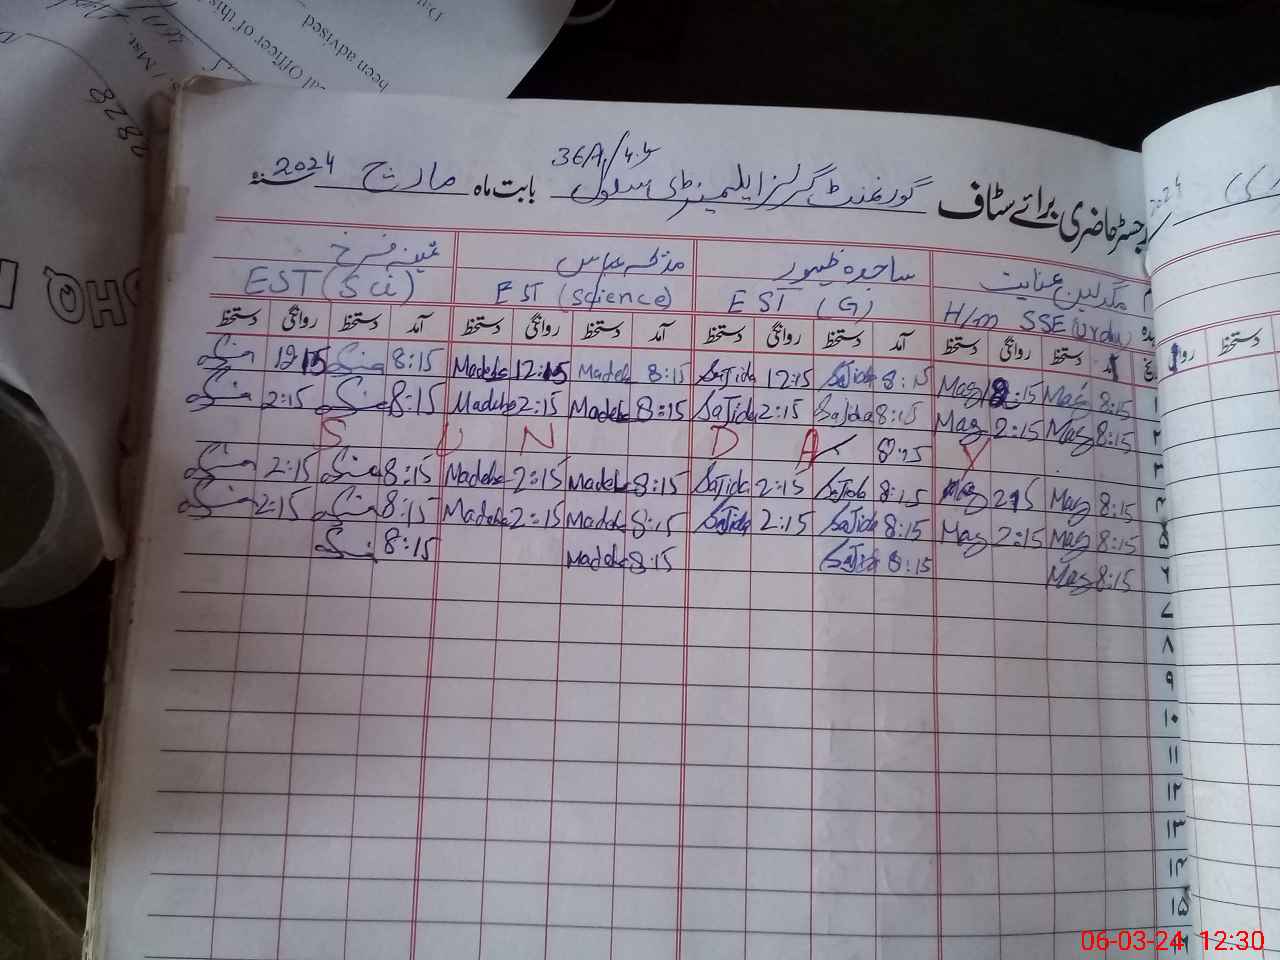 been advised
al Officer of this
s. / Mst.
2828
رجسٹر حاضری برائے سٹاف گورنمنٹ گرلز ایلیمنٹری سکول 36A/4.L بابت ماہ مارچ 2024 سنہ
مگدلین عنایت ساجدہ ظہور مدثرہ عباس ثمینہ فرخ
H/m SSE (Urdu) EST (G) EST (Science) EST (Sci)
دستخط روانگی دستخط آمد دستخط روانگی دستخط آمد دستخط روانگی دستخط آمد دستخط روانگی دستخط
۱ 8:15 Mag 12:15 Mag 8:15 Sajida 12:15 Sajida 8:15 Madeha 12:15 Madeha 8:15 12:15
۲ 8:15 Mag 2:15 Mag 8:15 Sajida 2:15 Sajida 8:15 Madeha 2:15 Madeha 8:15 2:15
۳ S U N D A Y 8:15
۴ 8:15 Mag 2:15 Mag 8:15 Sajida 2:15 Sajida 8:15 Madeha 2:15 Madeha 8:15 2:15
۵ 8:15 Mag 2:15 Mag 8:15 Sajida 2:15 Sajida 8:15 Madeha 2:15 Madeha 8:15 2:15
۶ 8:15 Mag 8:15 Sajida 8:15 Madeha 8:15
۷
۸
۹
۱۰
۱۱
۱۲
۱۳
۱۴
۱۵
دستخط
2024
06-03-24 12:30